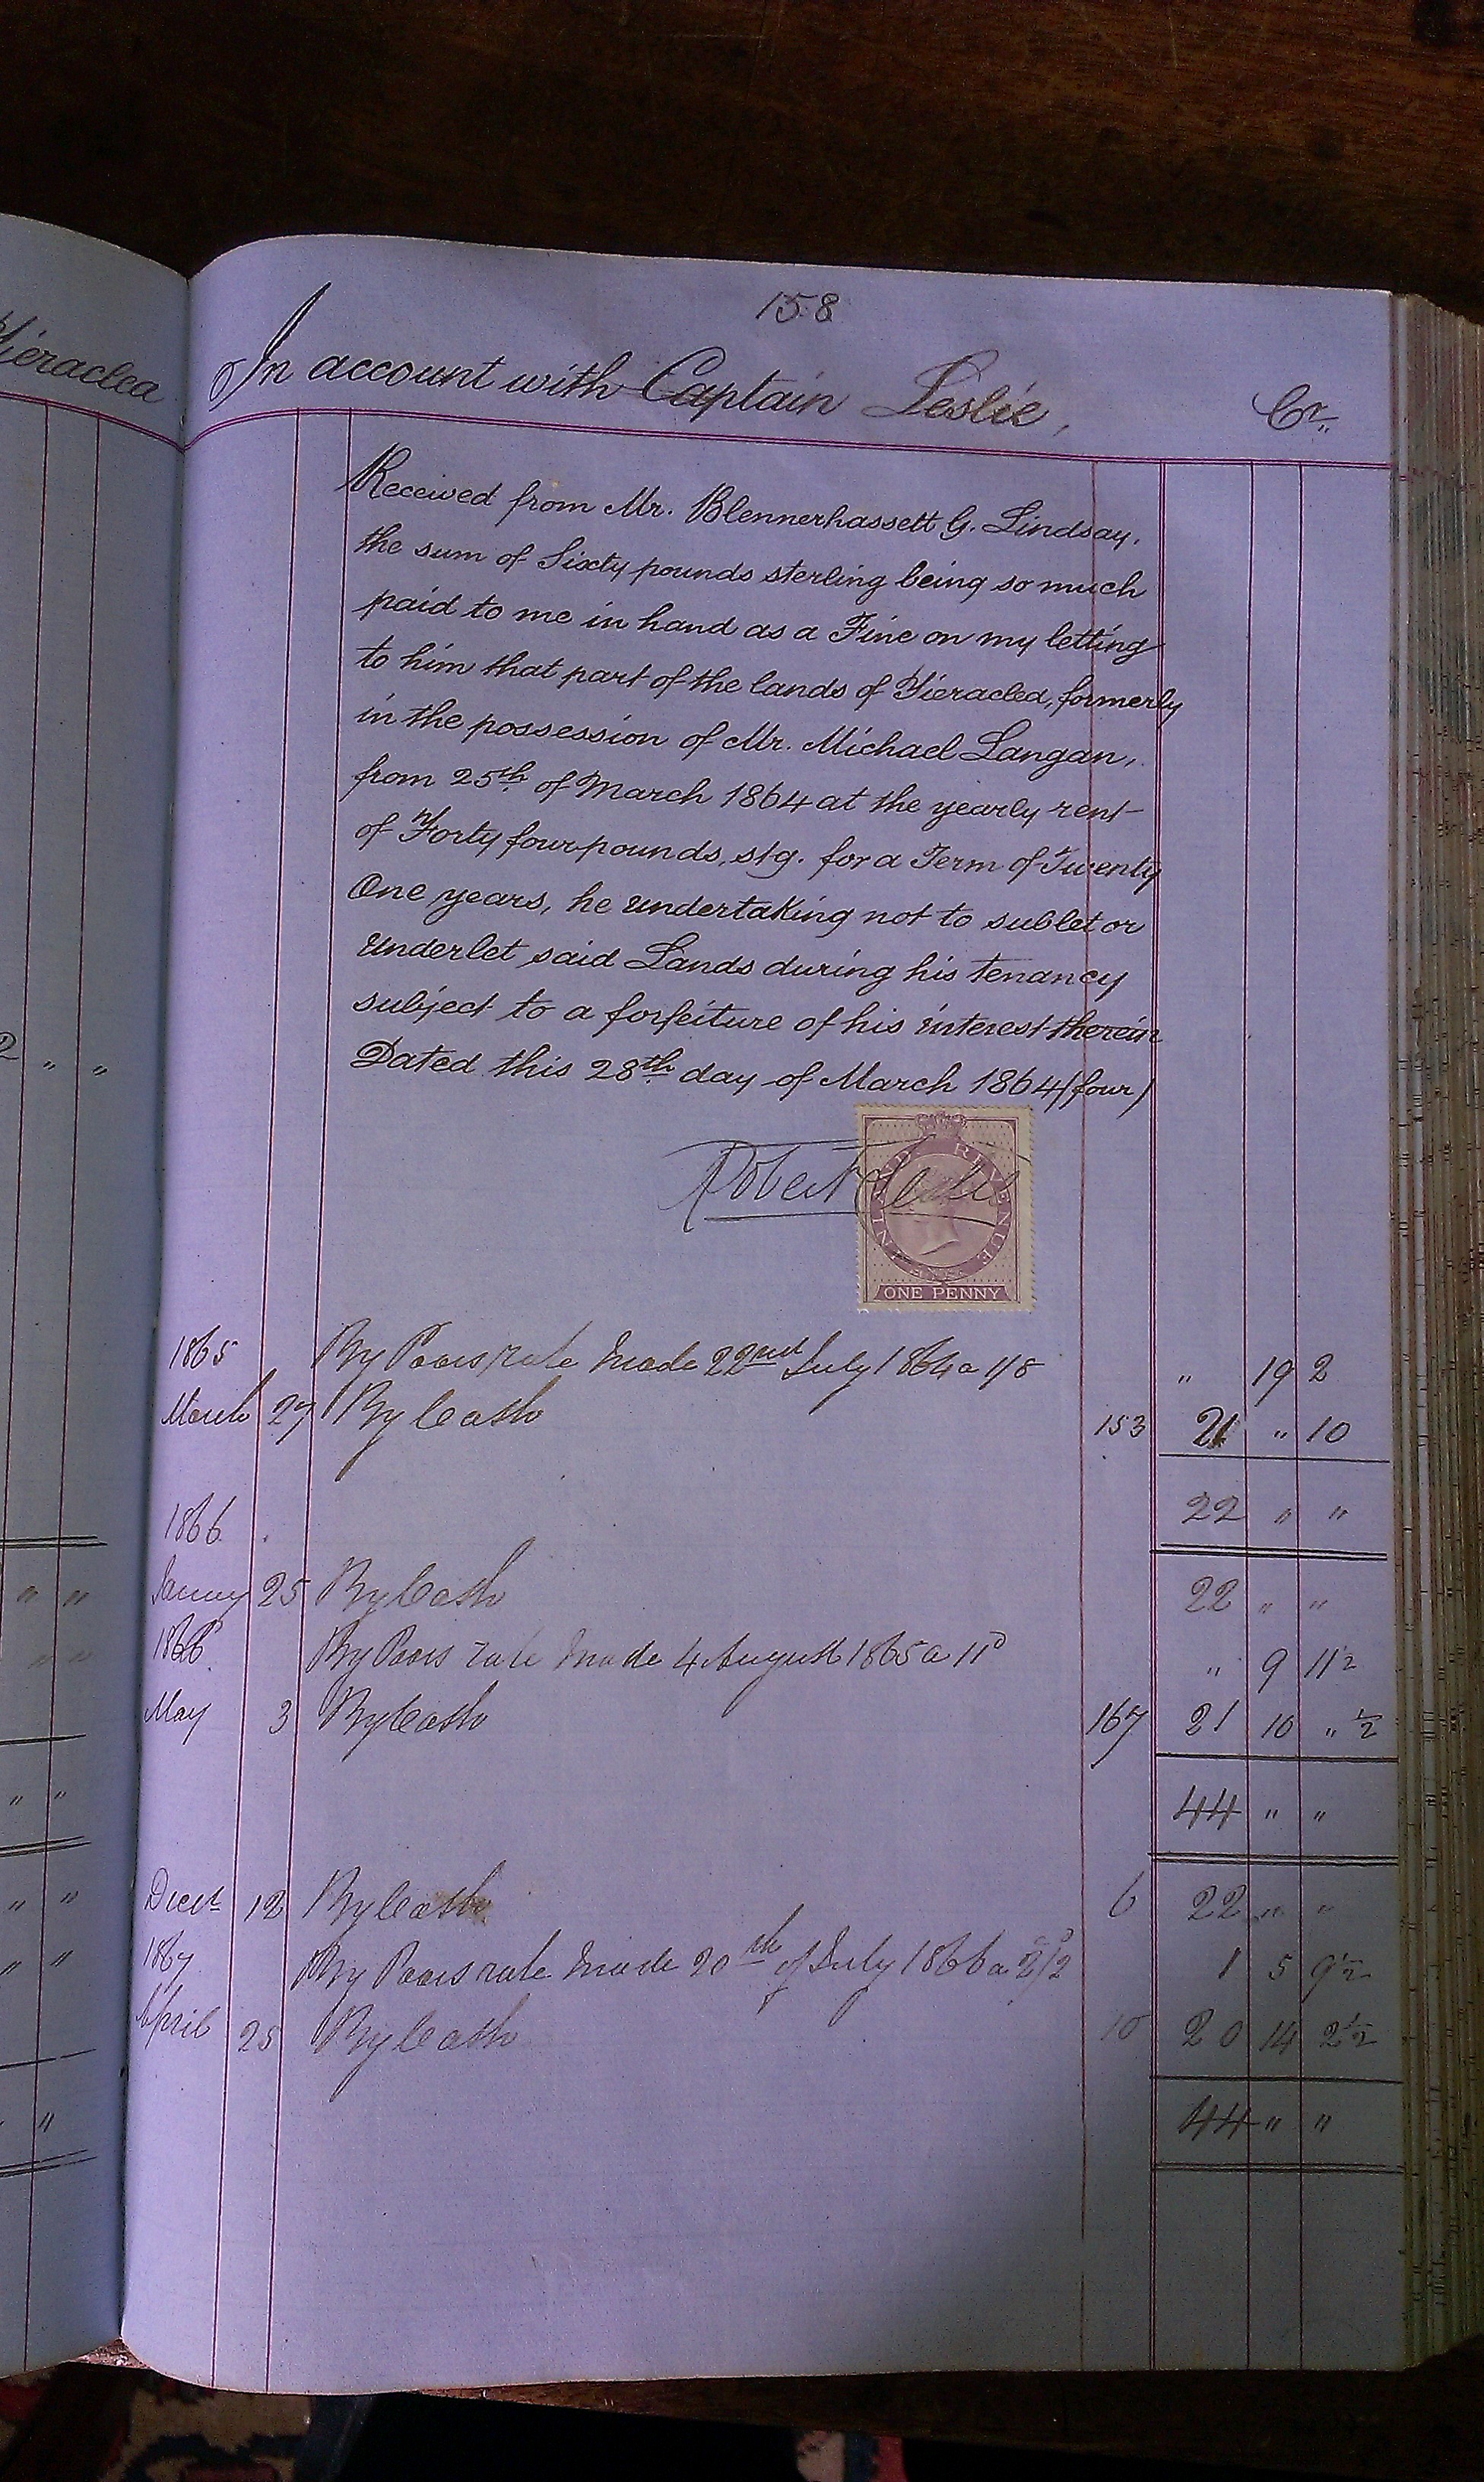 158
In account with Captain Leslie, Cr.
Received from Mr. Blennerhassett G. Lindsay.
the sum of Sixty pounds sterling being so much
paid to me in hand as a Fine on my letting
to him that part of the lands of Tieraclea, formerly
in the possession of Mr. Michael Langan,
from 25th of March 1864 at the yearly rent
of Forty four pounds, stg. for a Term of Twenty
One years, he undertaking not to sublet or
underlet said Lands during his tenancy
subject to a forfeiture of his interest therein
Dated this 28th day of March 1864 (four)
Robert Leslie
INLAND REVENUE
ONE PENNY
1865 By Poors rate made 22nd July 1864 a 1/8 " 19 2
March 27 By Cash 153 21 " 10
22 " "
1866
January 25 By Cash 22 " "
1866 By Poors rate made 4 August 1865 a 11D " 9 11½
May 3 By Cash 167 21 10 " ½
44 " "
Decr 12 By Cash 6 22 " "
1867 By Poors rate made 20th of July 1866 a 2/2 1 5 9½
April 25 By Cash 10 20 14 2½
44 " "